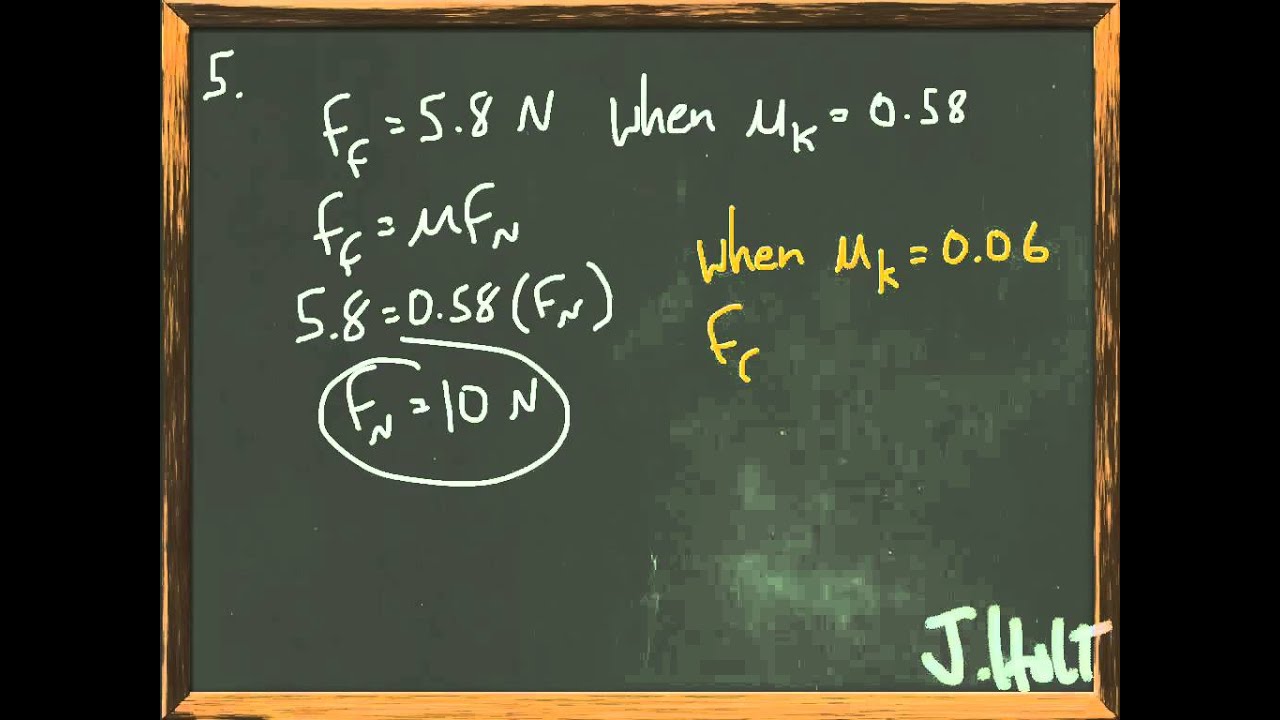 5.
F_f = 5.8 N when μ_k = 0.58
F_f = μF_N
5.8 = 0.58 (F_N)
F_N = 10 N
when μ_k = 0.06
F_f
J. Holt